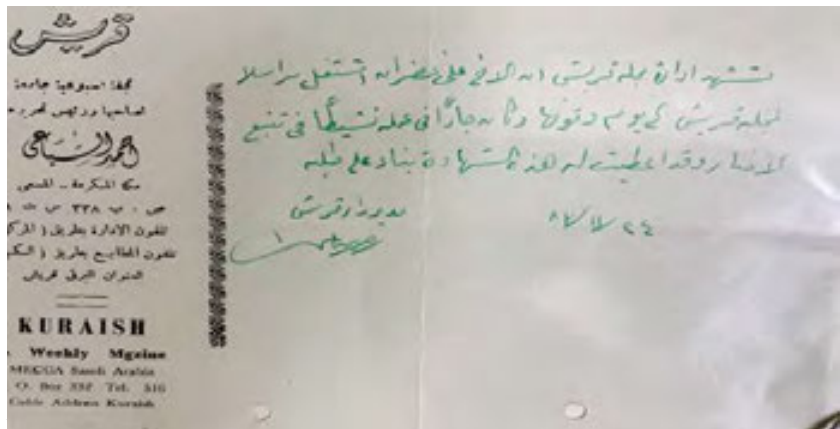 قريش
مجلة اسبوعية جامعة
لصاحبها ورئيس تحريرها
احمد السباعي
مكة المكرمة - المسعى
ص . ب ٣٣٨ س ت
تلفون الادارة بطريق
تلفون المطابع بطريق
العنوان البرقي قريش
KURAISH
Weekly Mgzine
MECCA Saudi Arabia
O. Box Tel.
Cable Address Kuraish
تشهد ادارة مجلة قريش ان الاخ علي خضران اشتغل مراسلا
لمجلة قريش وكان جادًا في عمله نشيطًا في تتبع
الاخبار وقد اعطيت له هذه الشهادة بناء على طلبه
قريش
٢٤